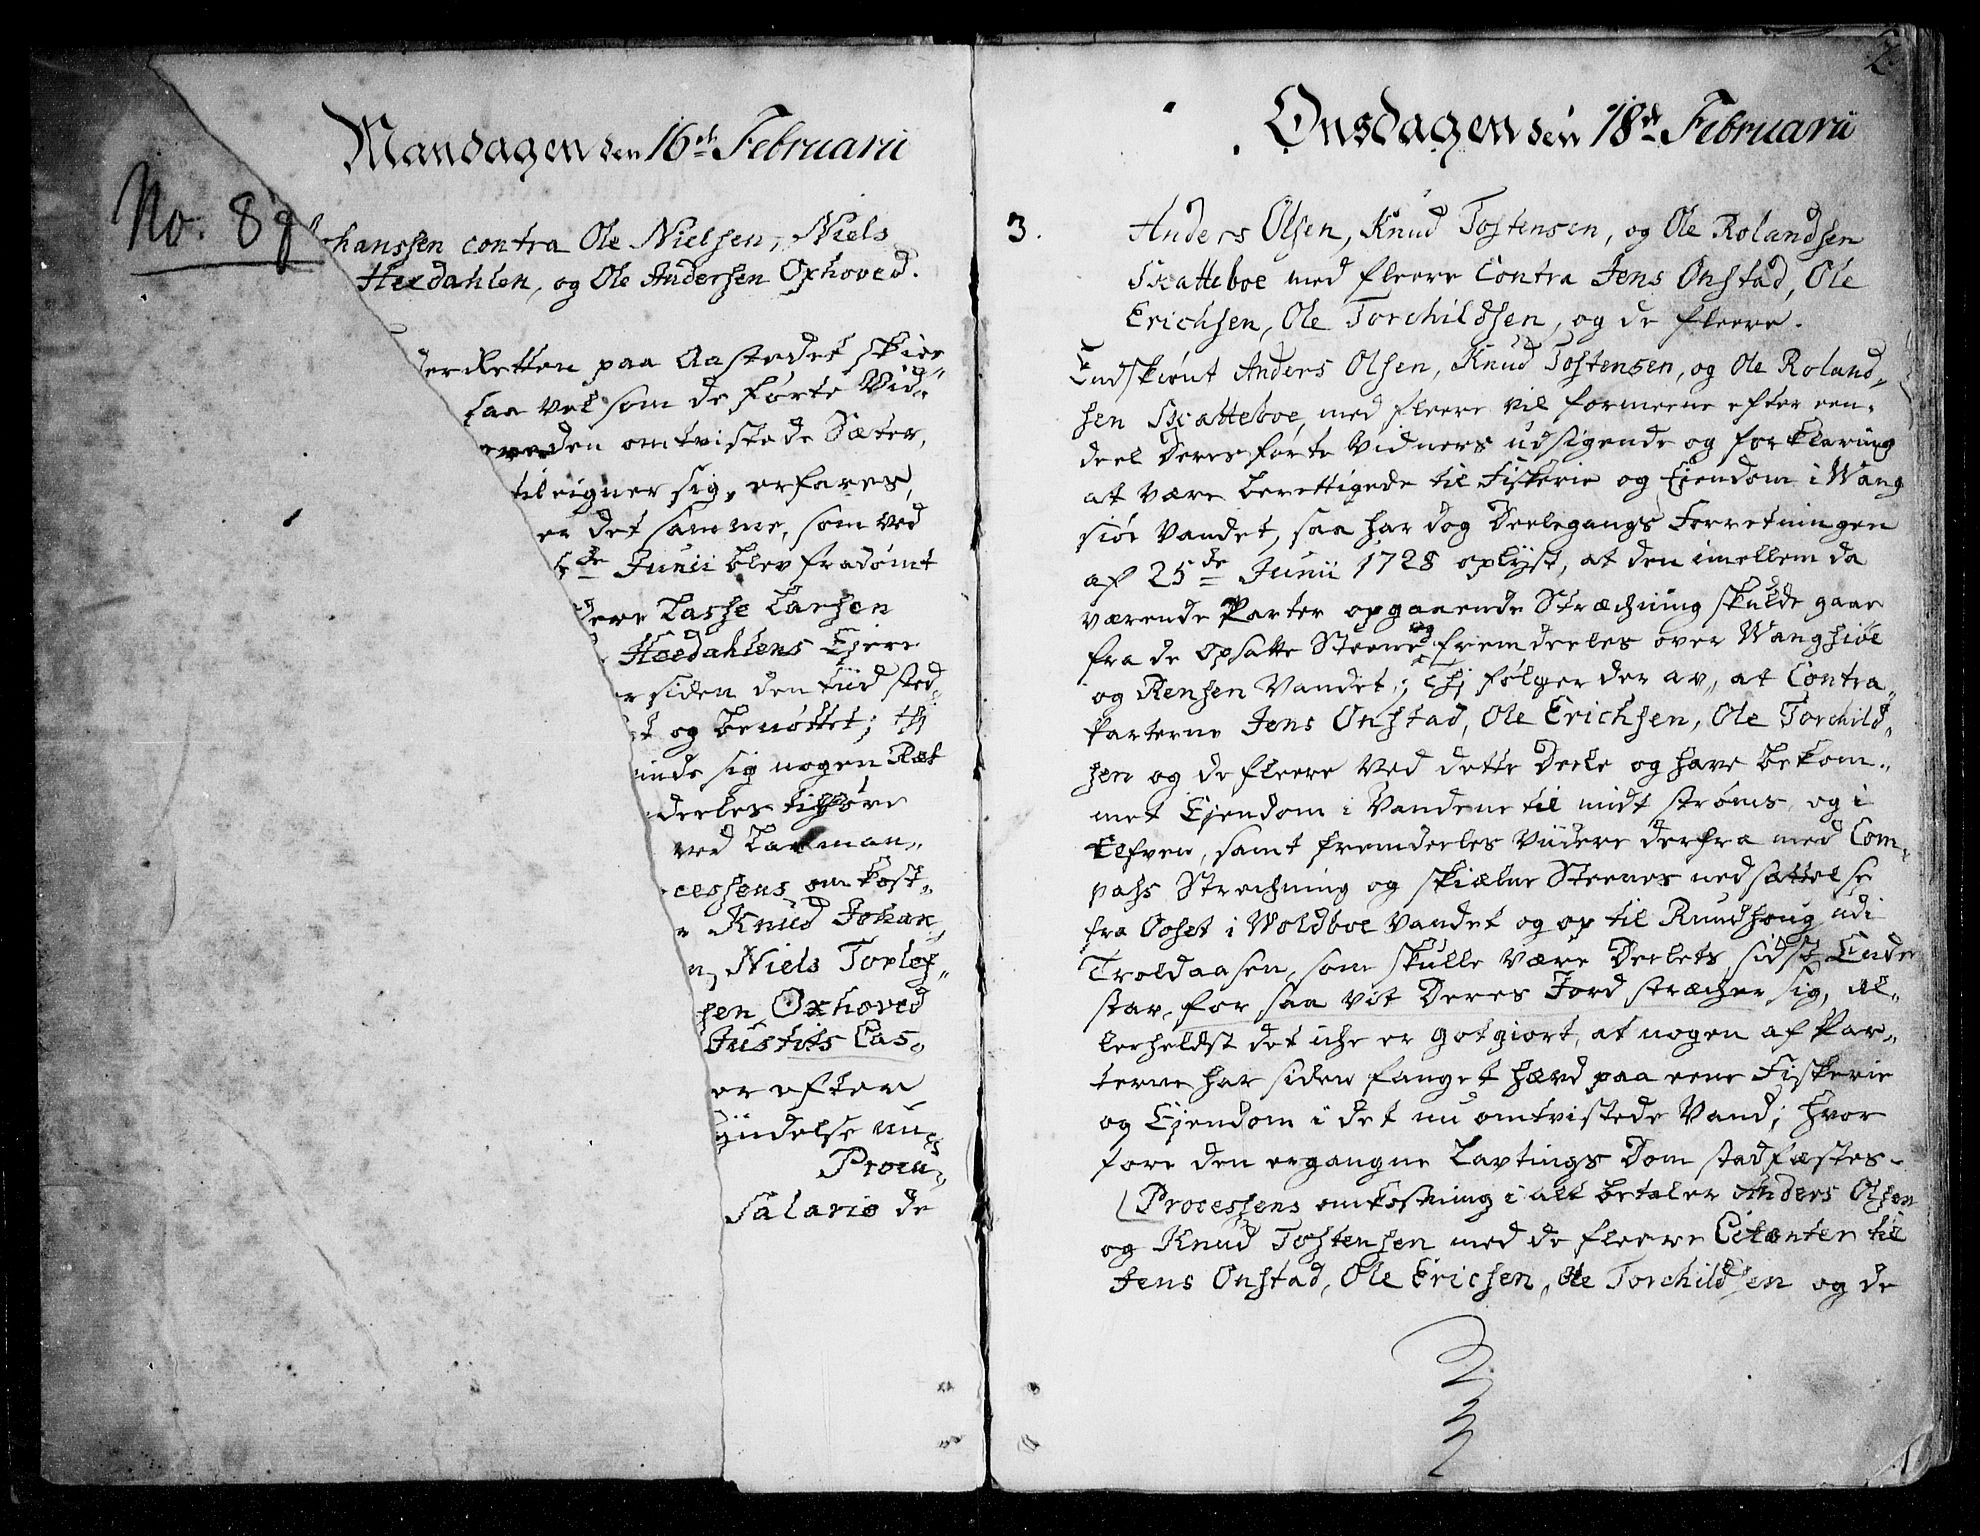 Mandagen den 16de Februarii
No. 8
ohanssen contra Ole Nielsen, Niels
Hexdahlen, og Ole Andersen Oxhoved.
derRetten paa Aastedet skier„
saa vel som de førte Vid„
den omtvistede Sæter,
tileigner sig, erfares,
er det samme, som ved
5de Junii blev fradømt
dere Lasse Larsen
Hexdahlens Ejere
r siden den tiid sted„
t og benøttet; thi
inde sig nogen Ræt
deeles tilhøre
ved Laxman„
cessens omkost„
r Knud Johan„
n, Niels Torles„
sen Oxhoved
Justits Cas„
er efter
yndelse
Procu„
Salario de
2
Onsdagen den 18de Februarii
3. Anders Olsen, Knud Tostensen, og Ole Rolandsen
Skatteboe med fleere Contra Jens Onstad, Ole
Erichsen, Ole Torchildsen, og de fleere.
Endskiønt Anders Olsen, Knud Tostensen, og Ole Roland„
sen Skatteboe, med fleere vil formeene efter een„
deel Deres førte Vidners udsigende og forklaring
at være berettigede til Fiskerie og Eiendom i Wang
siøe Vandet, saa har dog Deelegangs Forretningen
af 25de Junii 1728 oplyst, at den imellem da
værende Parter opgaaende Strækning skulde gaae
fra de opsatte Steene og fremdeeles over Wangsiøe
og Rensen Vandet; thi følger der av, at Contra„
Parterne Jens Onstad, Ole Erichsen, Ole Torchild„
sen og de fleere ved dette Deele og have bekom„
met Ejendom i Vandene til midt strøms, og i
Elfven, samt fremdeeles viidere derfra med Com„
pass Strechning og skielne Steenes nedsættelse
fra Ooset i Woldboe Vandet og op til Rundhoug udi
Troldaasen, som skulle være Deelets sidste Ende
stav, for saa vit Deres Jord stræcher sig, al„
lerheldst det iche er gotgiort, at nogen af Par„
terne har siden fanget hævd paa eene Fiskerie
og Ejendom i det nu omtvistede Vand; hvor
fore den ergangne Lavtings Dom stadfæstes.
Processens omkostning i alt betaler Anders Olsen
og Knud Tostensen med de fleere Citanter til
Jens Onstad, Ole Ericsen, Ole Torchildsen og de